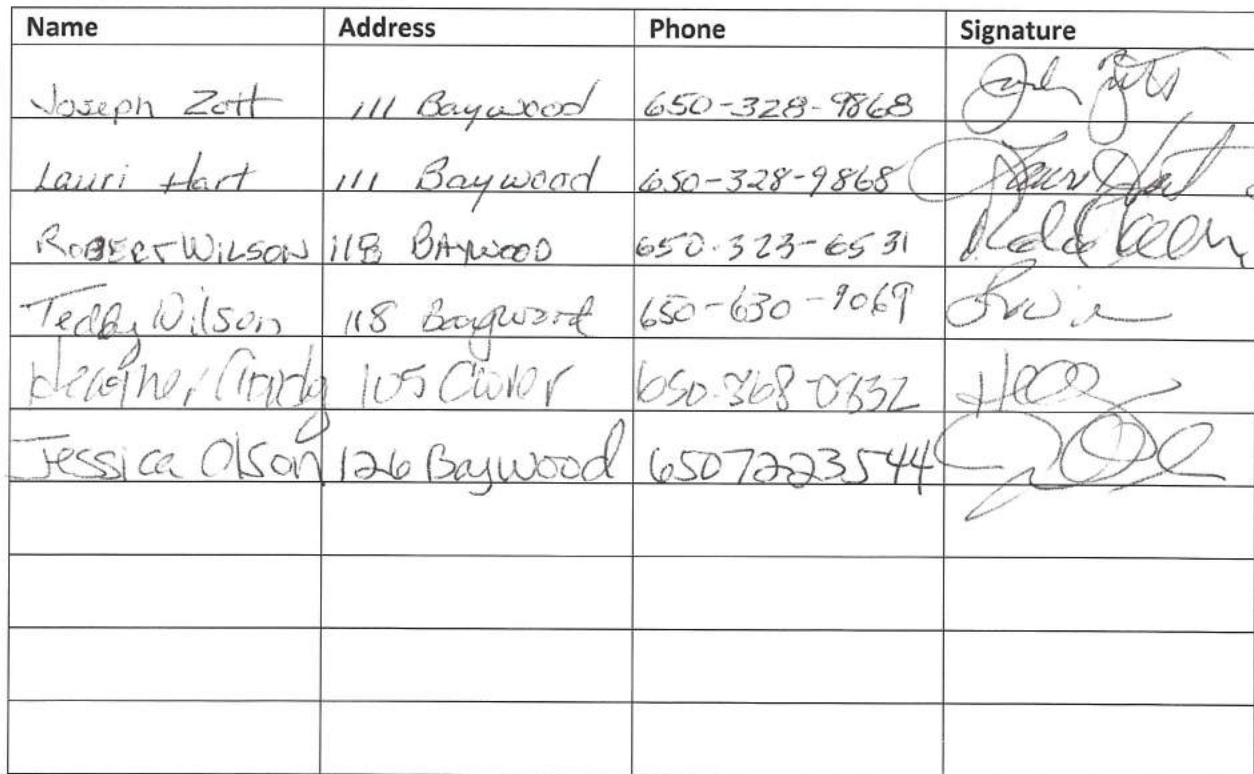 Name Address Phone Signature
Joseph Zott 111 Baywood 650-328-9868
Lauri Hart 111 Baywood 650-328-9868 Lauri Hart
ROBERT WILSON 118 BAYWOOD 650-323-6531
Teddy Wilson 118 Baywood 650-630-9069
Heather 105 Clover 650-368-0832
Jessica Olson 126 Baywood 6507223544